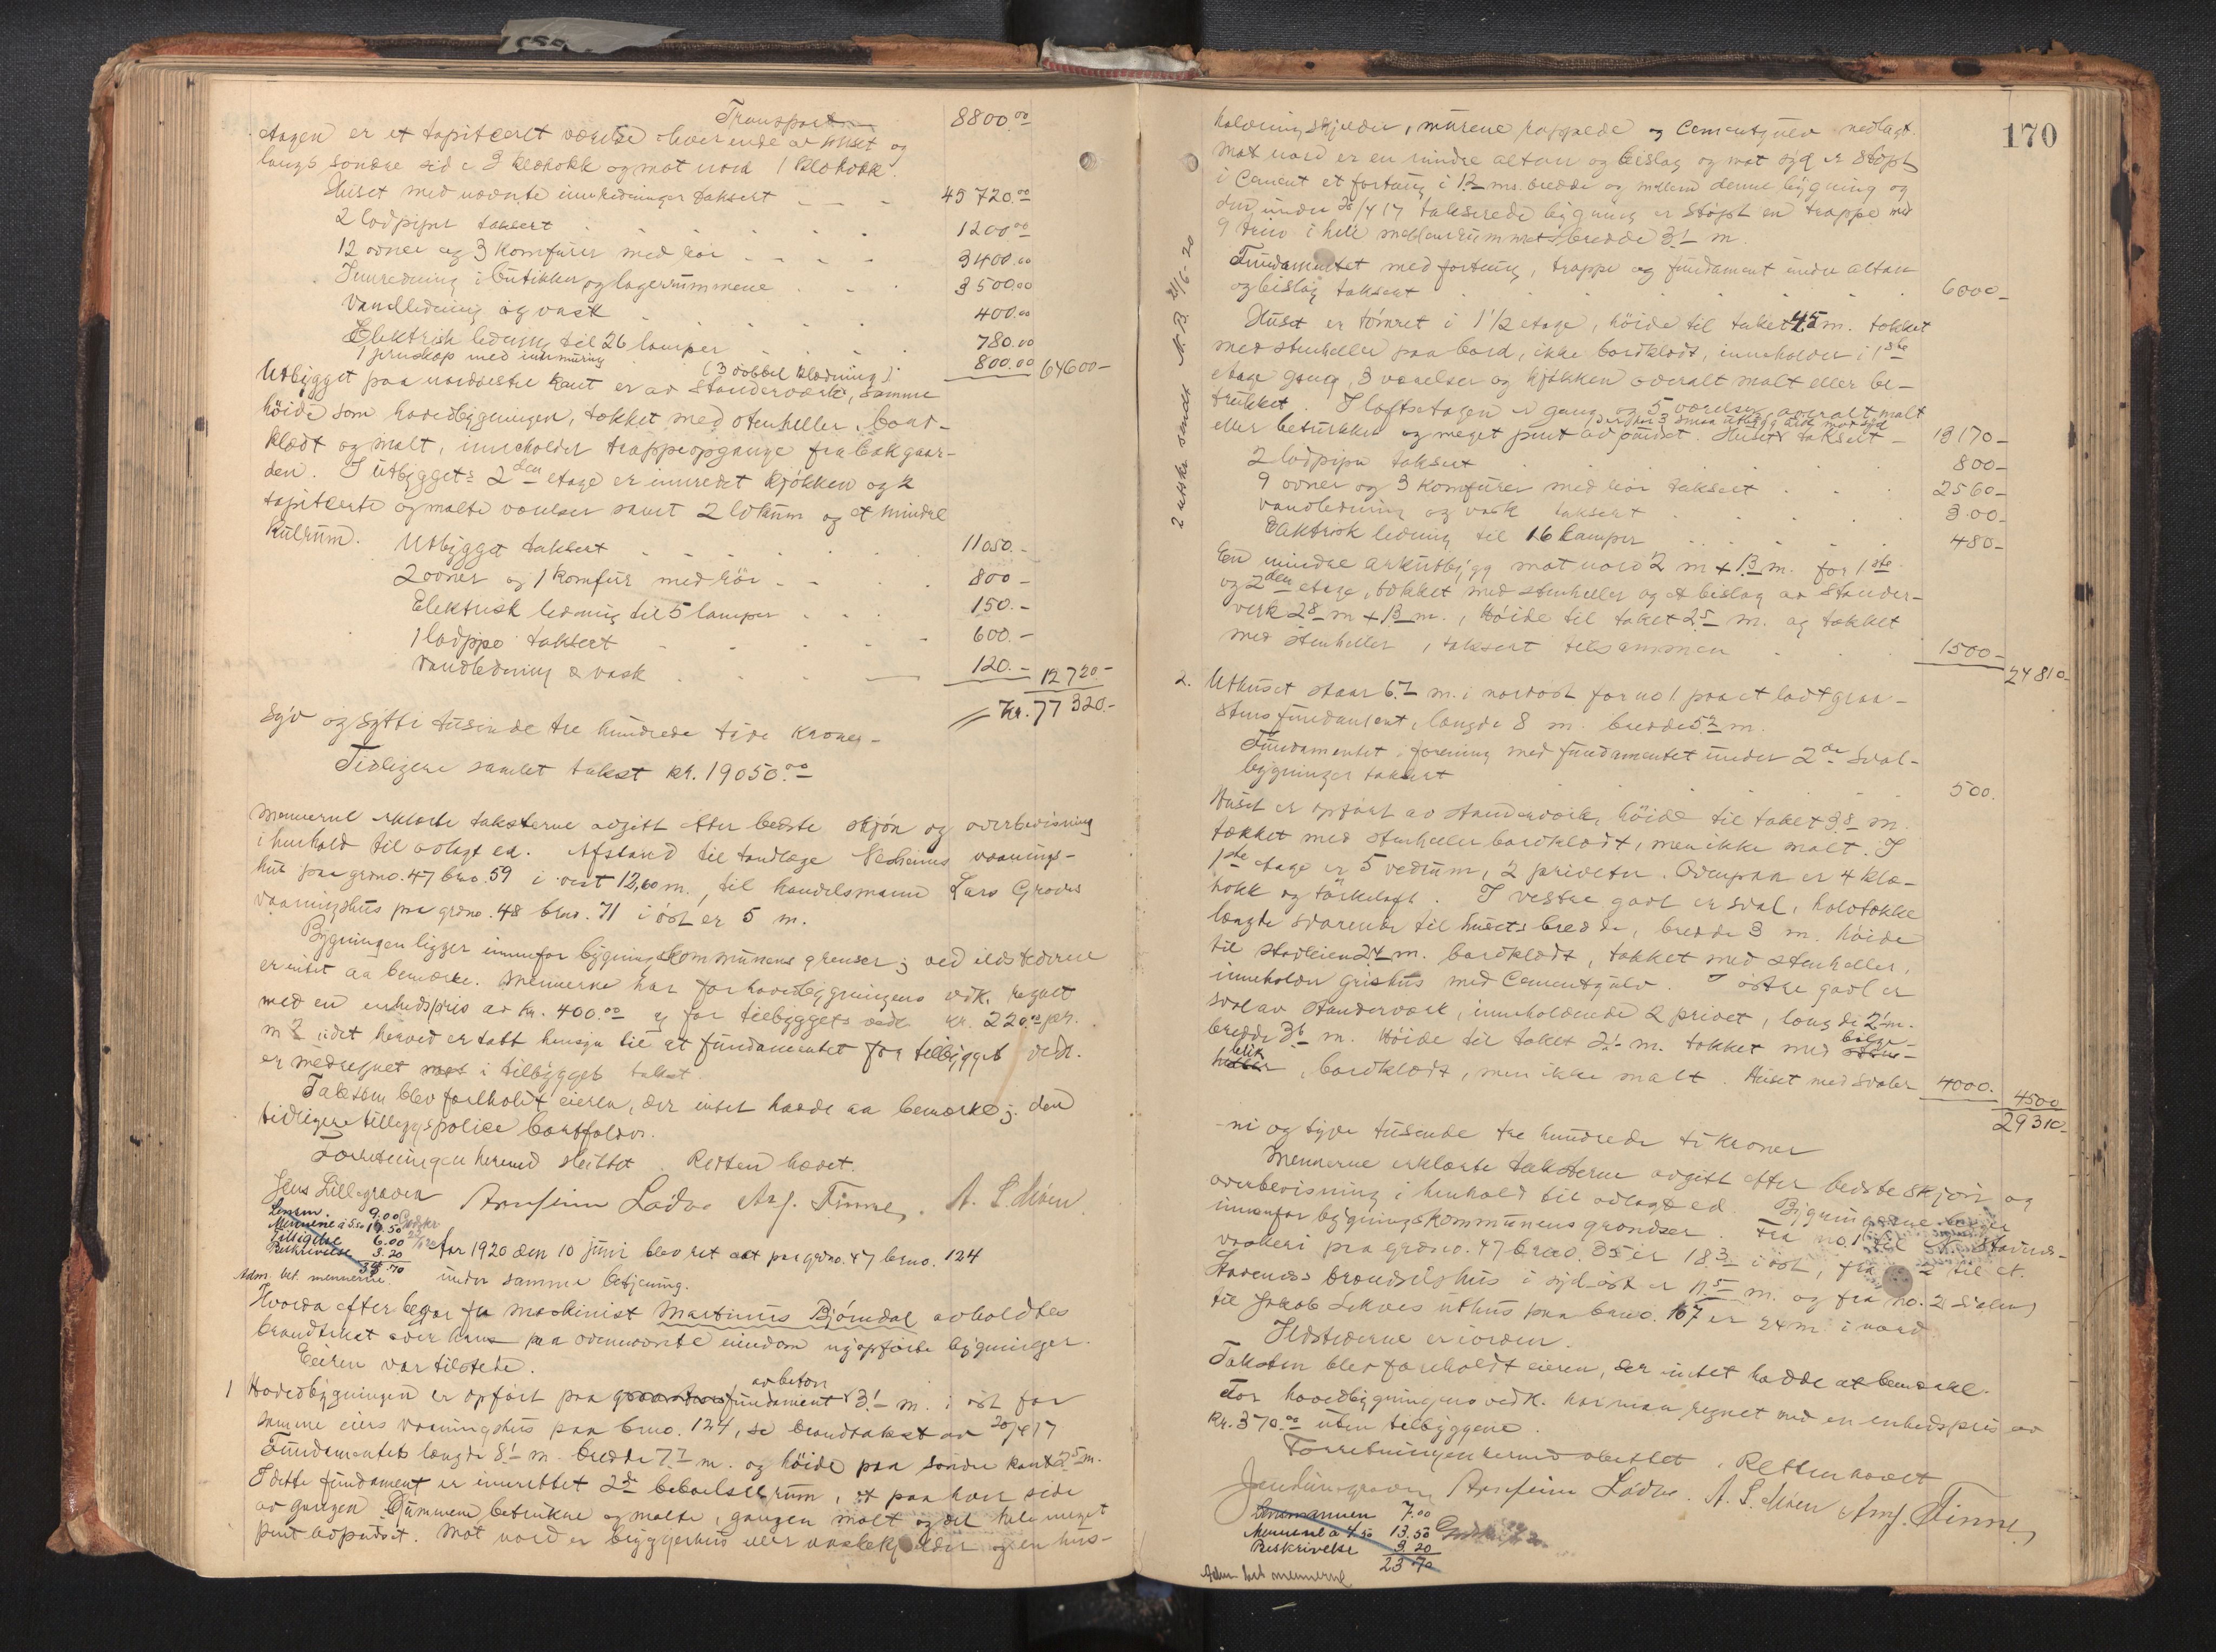 Transport 8800.00
etagen er et tapitseret værelse i hver ende av huset og
langs søndre side 3 klækokk og mot nord 1 klækokk.
Huset med nævnte innredninger taksert 45720.00
2 lodpiper taksert 1200.00
12 ovner og 3 komfurer med rør 3400.00
Innredning i butikker og lagerrummene 3500.00
Vandledning og vask 400.00
Elektrisk ledning til 26 lamper 780.00
1 jernskap med innmuring (3 dobbel klædning) 800.00 64600-
Utbygget paa nordvestre kant er av standerverk, samme
høide som hovedbygningen, tækket med stenheller, bord-
klædt og malt, inneholder trappeopgange fra bakgaar-
den. I utbyggets 2den etage er innredet kjøkken og 2
tapitserte og malte værelser samt 2 lokum og et mindre
kulrum. Utbygget taksert 11050.-
2 ovner og 1 komfur med rør 800-
Elektrisk ledning til 5 lamper 150.-
1 lodpipe taksert 600.-
Vandledning & vask 120.- 12720.-
Kr. 77320.-
Syv og sytti tusinde tre hundrede tyve kroner-
Tidligere samlet takst kr. 19050.00
Mennerne erklærte taksterne avgitt efter bedste skjøn og overbevisning
i henhold til avlagt ed. Afstand til tandlæge Nesheims vaanings-
hus paa grdno. 47 bno. 59 i vest 12,60 m., til handelsmann Lars Groves
vaaningshus paa grdno. 48 bno. 71 i øst er 5 m.
Bygningen ligger innenfor bygningskommunens grenser; ved ildstederne
er intet aa bemærke. Mennerne har for hovedbygningens vedk. regnet
med en enhedspris av kr. 400.00 og for tilbyggets vedk. kr. 220.00 pr.
m2 idet herved er tatt hensyn til at fundamentet for tilbygget vedk.
er medregnet i tilbyggets takst.
Taksten blev foreholdt eieren, der intet hadde aa bemerke; den
tidligere tillegspolice bortfalder.
Forretningen hermed sluttet. Retten hævet.
Jens Lillegraven Arnfinn Lødve Anf. Finne, A. S. Møen.
Lensm. 9.00
Mennene à 5.50 16.50
Tilsigelse 6.00
Beskrivelse 3.20
34.70
Adm. bet. mennerne.
Aar 1920 den 10 juni blev ret sat paa grdno. 47 bno. 124
under samme betjening.
Hvorda efter begjær fra maskinist Martinus Bjørndal avholdtes
brandtakst over hans paa ovennævnte eiendom nyopførte bygninger.
Eieren var tilstede.
1 Hovedbygningen er opført paa av beton fundament 3.1 m. i øst for
samme eiers vaaningshus paa bno. 124, se brandtakst av 20/4 17
Fundamentets længde 8.1 m. bredde 7.7 m. og høide paa søndre kant 2.5 m.
I dette fundament er innrettet 2 beboelsesrum, et paa hver side
av gangen. Rummene betrukne og malte, gangen malt og det hele meget
pent avpudset. Mot nord er byggerhus eller vaskekjelder og en hus-
170
holdningskjelder, murene rappede og cementgulv nedlagt.
Mot nord er en mindre altan og bislag og mot syd er støpt
i cement et fortaug i 1.2 ms. bredde og mellem denne bygning og
den under 20/4 17 takserede bygning er støpt en trappe med
9 trin i hele mellemrummets bredde 3.1 m.
Fundamentet med fortaug, trappe og fundament under altan
og bislag taksert 6000-
Huset er tømret i 1 1/2 etage, høide til taket 4.5 m. tækket
med stenheller paa bord, ikke bordklædt, inneholder i 1ste
etage gang, 3 værelser og kjøkken overalt malt eller be-
trukket. I loftsetagen er gang og 5 værelser overalt malt
eller betrukken og meget pent avpudset. Huset taksert 13170-
2 lodpiper taksert 800-
9 ovner og 3 komfurer med rør taksert 2560-
Vandledning og vask taksert 300-
Elektrisk ledning til 16 lamper 480-
En mindre arkutbygg mot nord 2 m x 1.3 m. for 1ste
og 2den etage, tækket med stenheller og et bislag av stander-
verk 2.8 m x 1.3 m., høide til taket 2.5 m. og tækket
med stenheller, taksert tilsammen 1500-
24810-
2 utskr. sendt N.B. 21/6-20
2. Uthuset staar 6.7 m. i nordøst for no 1 paa et lødt graa-
stens fundament, længde 8 m. bredde 5.2 m.
Fundamentet i forening med fundamentet under 2de sval-
bygninger taksert 500.
Huset er opført av standerverk, høide til taket 3.8 m.
tækket med stenheller bordklædt, men ikke malt. I
1ste etage er 5 vedrum, 2 priveter. Ovenpaa er 4 klæ-
kokk og tørkeloft. I vestre gavl er sval, halvtække
længde svarende til husets bredde, bredde 3 m. høide
til stavleien 2.4 m. bordklædt, tækket med stenheller,
inneholder grishus med cementgulv. I østre gavl er
sval av standerverk, inneholdende 2 privet, længde 2.1 m.
bredde 3.6 m. høide til taket 2.1 m. tækket med bølge-
blik, bordklædt, men ikke malt. Huset med svaler 4000. 4500
29310-
-ni og tyve tusende tre hundrede ti kroner
Mennerne erklærte taksterne avgitt efter bedste skjøn og
overbevisning i henhold til avlagt ed. Bygningerne ligger
innenfor bygningskommunens grændser. Fra no 1 til N. Stavenes-
vaskeri paa grdno. 47 bno. 35 er 18.3 i øst, fra 2 til et.
Stavenes brændselshus i sydøst er 11.5 m. og fra no. 2 svalen
til Jakob Lekves uthus paa bno. 107 er 24 m. i nord.
Ildstederne er i orden.
Taksten blev foreholdt eieren, der intet hadde at bemærke.
For hovedbygningens vedk. har man regnet med en enhedspris av
kr. 370.00 uten tilbyggene.
Forretningen hermed sluttet. Retten hævet
Jens Lillegraven Arnfinn Lødve. A. S. Møen Anf. Finne,
Lensmannen 7.00
Mennene à 4.50 13.50
Beskrivelse 3.20
23.70
Adm bet mennerne